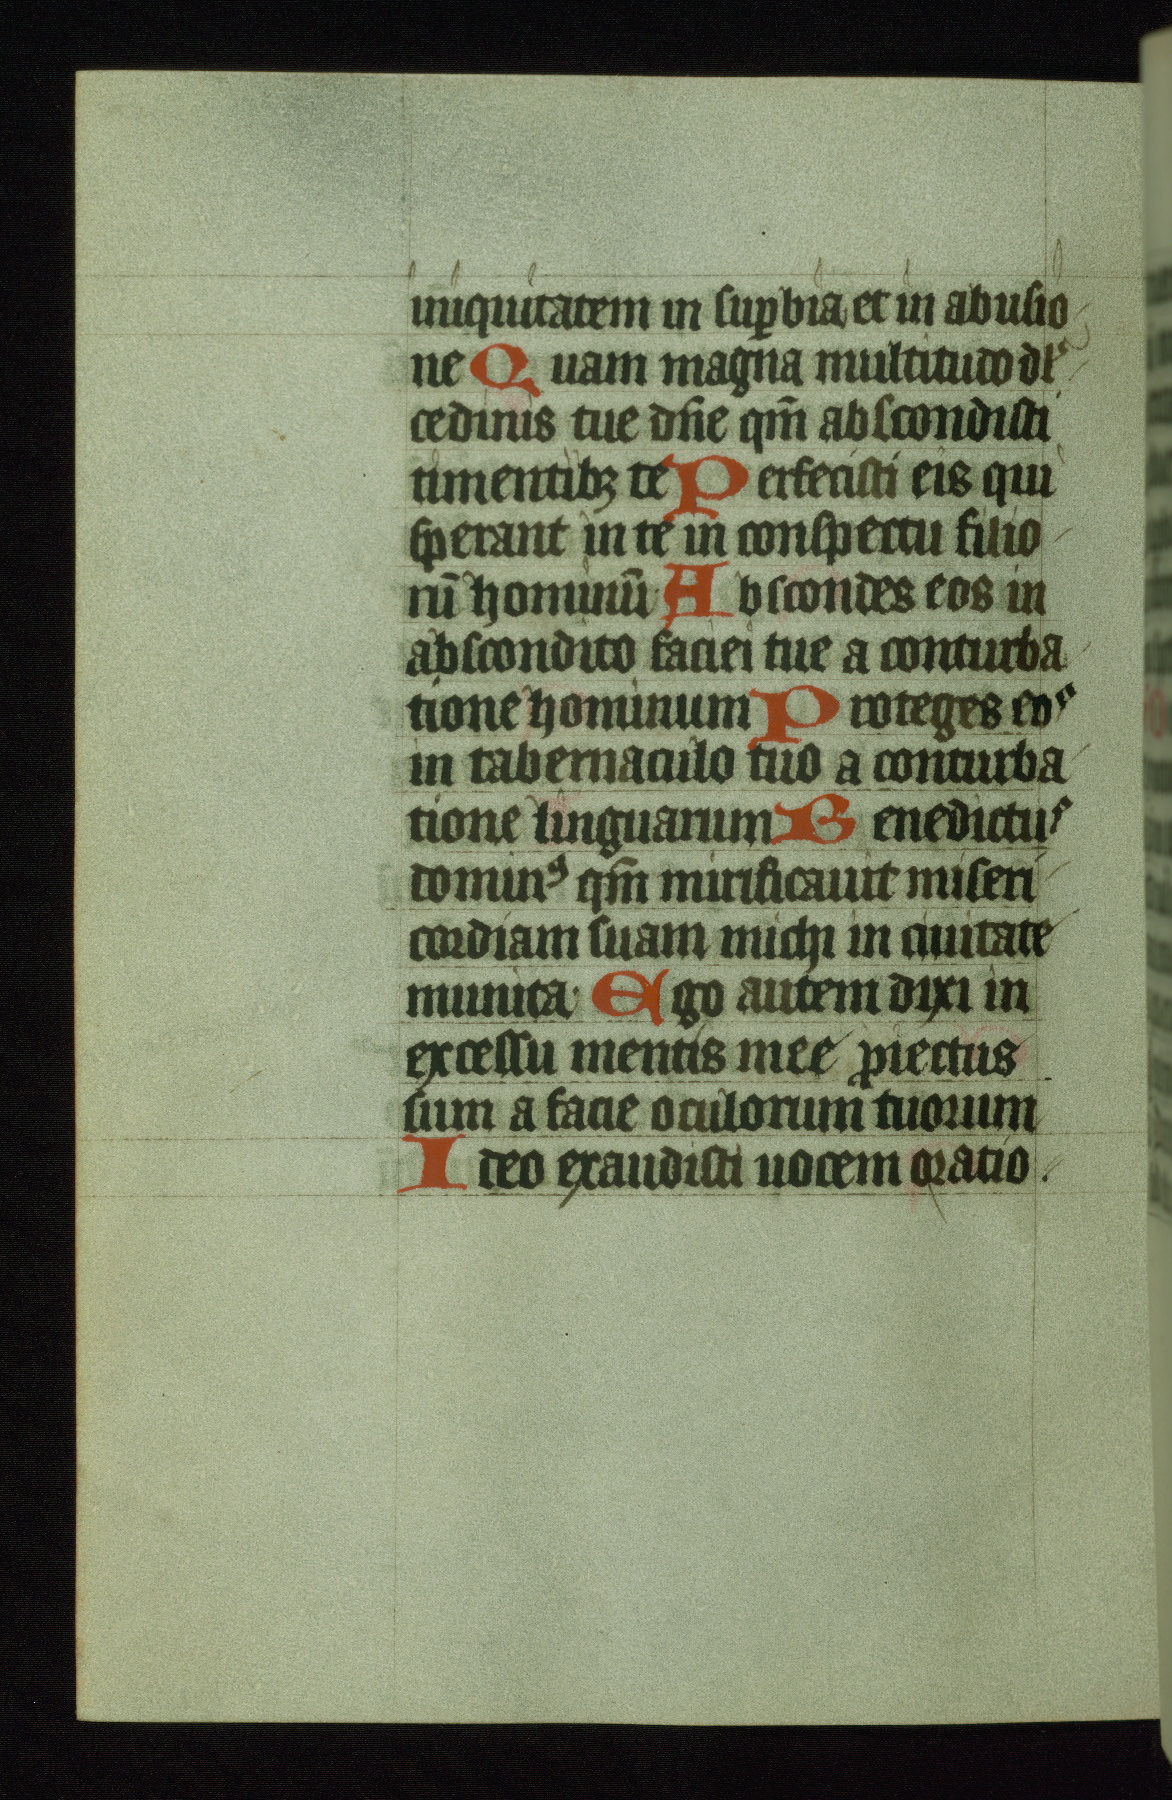 iniquitatem in suꝑbia et in abusio
ne Quam magna multitudo dl᷑
cedinis tue dn̄e qm̄ abscondisti
timentibꝫ te Perfecisti eis qui
sperant in te in conspectu filio
rū hominū Abscondes eos in
abscondito faciei tue a conturba
tione hominum Proteges eos
in tabernaculo tuo a conturba
tione linguarum Benedictus
dominꝰ qm̄ mirificauit miseri
cordiam suam michi in ciuitate
munita· Ego autem dixi in
excessu mentis mee ꝓiectus
sum a facie oculorum tuorum
Ideo exaudisti uocem oratio